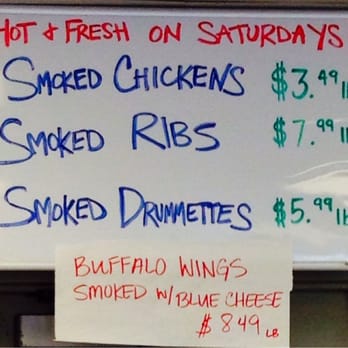 HOT & FRESH ON SATURDAYS
SMOKED CHICKENS $3.49 l
SMOKED RIBS $7.99 l
SMOKED DRUMMETTES $5.99 lb
BUFFALO WINGS
SMOKED W/ BLUE CHEESE
$ 8 49 LB